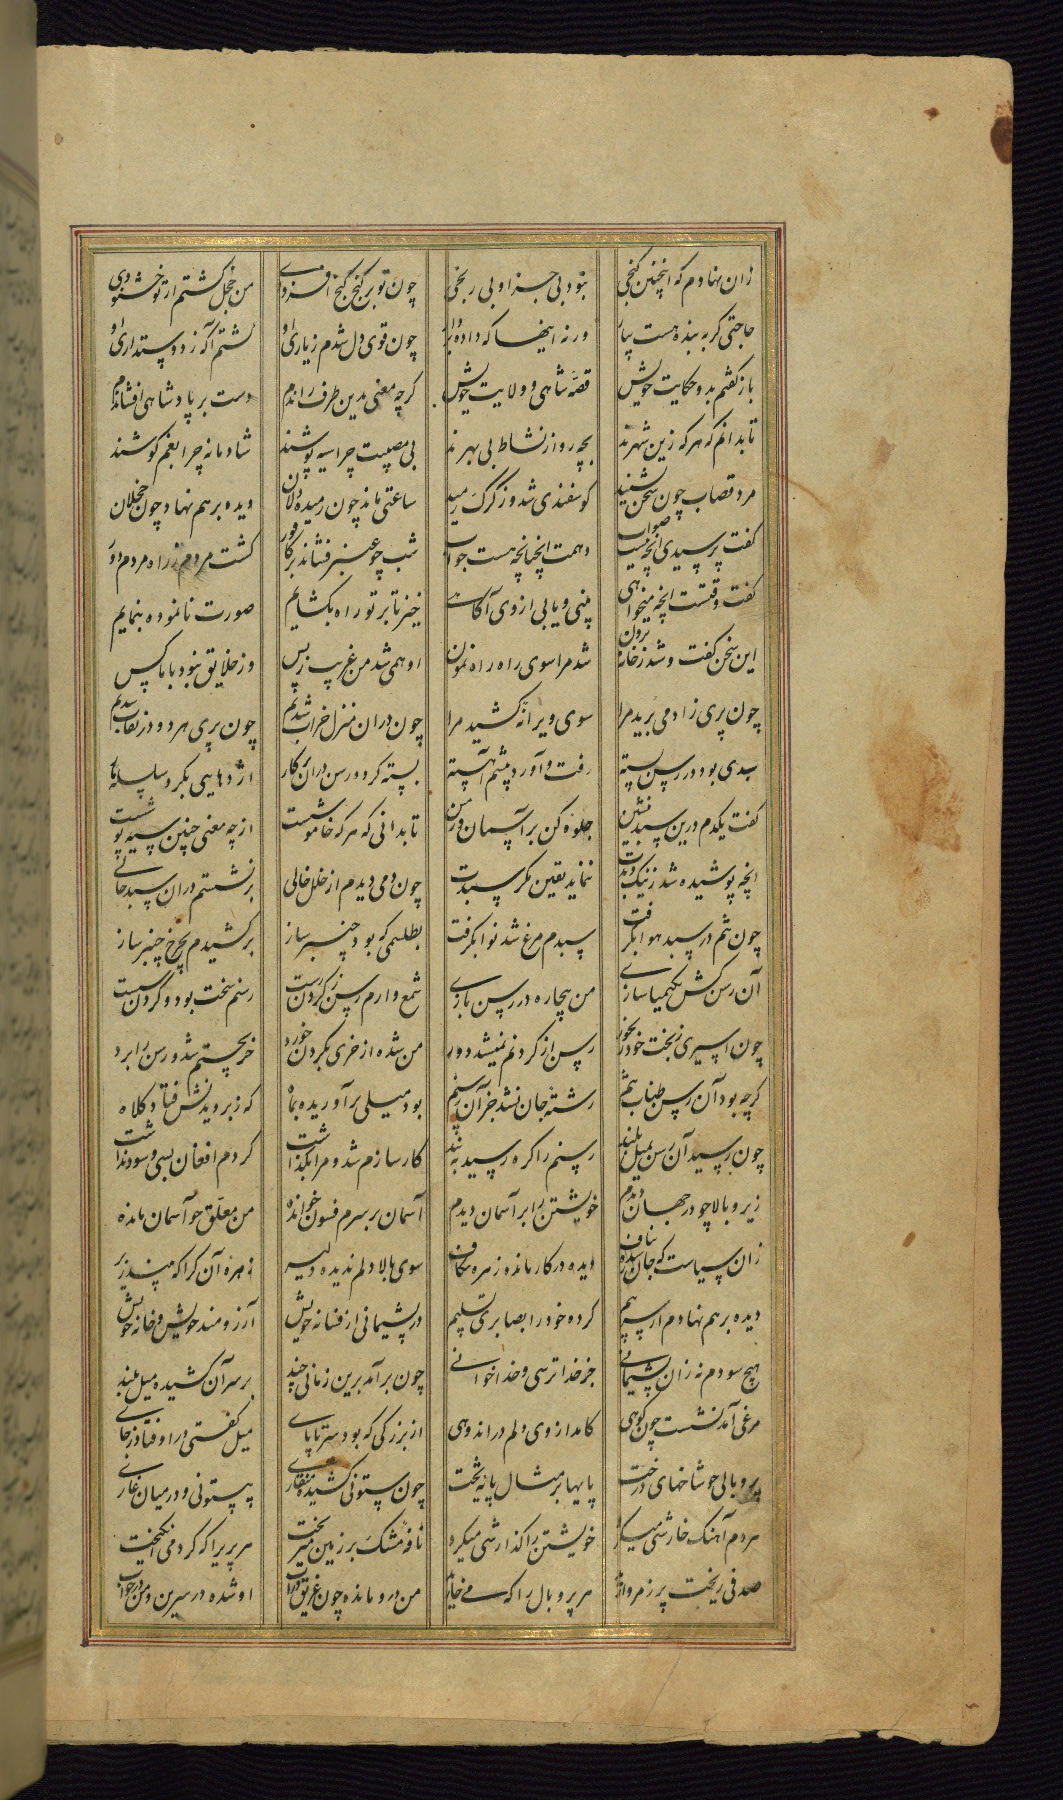 زان نهادم که اینچنین گنجی نبود بی جزا و بی رنجی چون تو بر گنج گنج افزودی من خجل گشتم ار تو خشنودی
حاجتی گر به بنده هست بیار ورنه اینها که داده بردار چون قوی دل شدم ز یاری او گشتم آگه ز دوستداری او
باز گفتم بدو حکایت خویش قصه شاهی و ولایت خویش گرچه معنی بدین طرف راندم دست بر پادشاهی افشاندم
تا بدانم که هر که زین شهرند بچه رو از نشاط بی بهرند بی مصیبت چرا سیه پوشند شادمانه چرا بغم کوشند
مرد قصاب چون سخن بشنید گوسفندی شد و ز گرگ رمید ساعتی ماند چون رمیده دلان دیده بر هم نهاد چون خجلان
گفت پرسیدی انچه نیست صواب دهمت انچنانچه هست جواب شب چو عنبر فشاند بر کافور گشت مردم ز راه مردم دور
گفت وقتست انچه میخواهی بینی و یابی از وی آگاهی خیز تا بر تو راه بگشایم صورت نانموده بنمایم
این سخن گفت و شد ز خانه برون شد مرا سوی راه راه نمون او همی شد من غریب ز پس وز خلایق نبود با ما کس
چون پری زاد می برید مرا سوی ویرانه کشید مرا چون دران منزل خراب شدیم چون پری هر دو در نقاب شدیم
سبدی بود در رسن بسته رفت و آورد پیشم آهسته بسته کرد و رسن دران پرکار اژدهایی بگرد سلسله مار
گفت یکدم درین سبد بنشین جلوه کن بر آسمان و زمین تا بدانی که هر که خاموشست از چه معنی چنین سیه پوشست
انچه پوشیده شد ز نیک و بدت ننماید یقین مگر سبدت چون دمی دیدم از خلل خالی برنشستم دران سبد حالی
چون تنم در سبد هوا بگرفت سبدم مرغ شد نوا بگرفت بطلسمی که بود چنبر ساز برکشیدم بچرخ چنبر ساز
آن رسن کش بکیمیا سازی من بیچاره در رسن بازی شمع وارم رسن ز گردن رست رسنم سخت بود و گردن سست
چون اسیری ز بخت خود مهجور رسن از گردنم نمیشد دور من شده از خری بگردن خورد خر بختم شد و رسن را برد
گرچه بود آن رسن طناب تنم رشته جان نشد جز آن رسنم بود میلی برآوریده بماه که ز بر دیدنش فتاد کلاه
چون رسید آن رسن بمیل بلند رسنم را گره رسید ببند کارسازم شد و مرا بگذاشت کردم افغان بسی و سود نداشت
زیر و بالا چو در جهان دیدم خویشتن را بر آسمان دیدم آسمان بر سرم فسون خوانده من معلق چو آسمان مانده
زان سیاست که جان رسید بناف دیده در کار مانده زهره شکاف سوی بالا دلم ندیده دلیر زهره آن کرا که بیند زیر
دیده بر هم نهادم از سر بیم کرده خود را بصابری تسلیم در پشیمانی از فسانه خویش آرزومند خویش و خانه خویش
هیچ سودم نه زان پشیمانی جز خدا ترسی و خدا خوانی چون برآمد برین زمانی چند بر سر آن کشیده میل بلند
مرغی آمد نشست چون کوهی کامد از وی دلم در اندوهی از بزرگی که بود سر تا پای میل گفتی در اوفتاد ز جای
پر و بالی چو شاخهای درخت پایها بر مثال پایه تخت چون ستونی کشیده منقاری بیستونی و در میان غاری
هر دم آهنگ خارشی میکرد خویشتن را گذارشی میکرد هر پری را که گرد می انگیخت نافه مشک بر زمین میریخت
هر پر و بال را که می خارید صدفی ریخت پر ز مروارید او شده در سرین و من در خواب من درو مانده چون غریق در آب